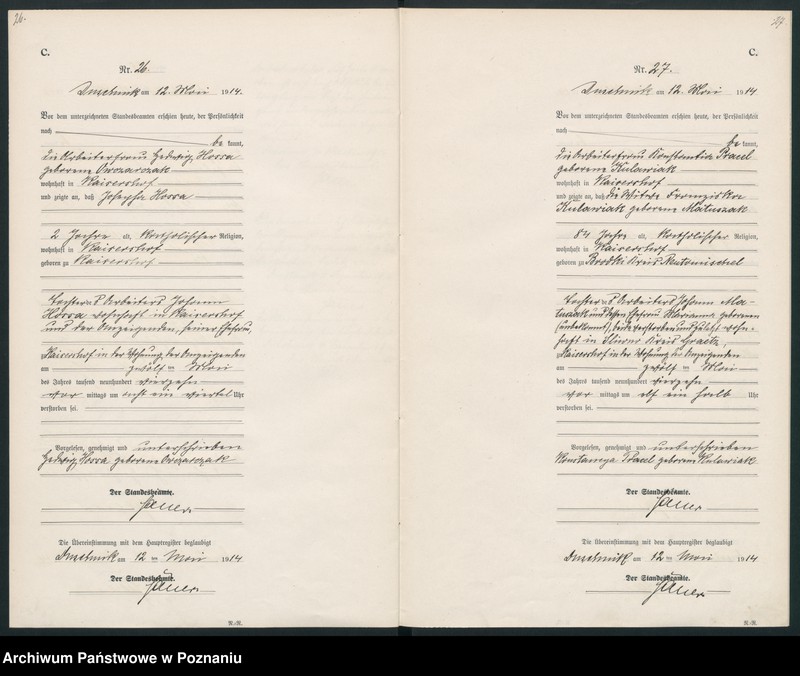 26.
C.
Nr. 26.
Duschnik am 12. Mai 1914.
Vor dem unterzeichneten Standesbeamten erschien heute, der Persönlichkeit
nach
be kannt,
die Arbeiterfrau Hedwig Hossa
geborene Owczarczak
wohnhaft in Kaisershof
und zeigte an, daß Josepha Hossa
2 Jahre alt, katholischer Religion,
wohnhaft in Kaisershof
geboren zu Kaisershof
Tochter des Arbeiters Johann
Hossa wohnhaft in Kaisershof
und der Anzeigenden, seiner Ehefrau,
Kaisershof in der Wohnung der Anzeigenden
am zwölften Mai
des Jahres tausend neunhundert vierzehn
vor mittags um acht ein viertel Uhr
verstorben sei.
Vorgelesen, genehmigt und unterschrieben
Hedwig Hossa geborene Owczarczak
Der Standesbeamte.
Die Übereinstimmung mit dem Hauptregister beglaubigt
Duschnik am 12 ten Mai 1914
Der Standesbeamte.
R.-R.
27
C.
Nr. 27.
Duschnik am 12. Mai 1914
Vor dem unterzeichneten Standesbeamten erschien heute, der Persönlichkeit
nach
be kannt,
die Arbeiterfrau Konstantia
geborene Kulawiak
wohnhaft in Kaisershof
und zeigte an, daß die Witwe Franziska
Kulawiak geborene Matuszak
84 Jahre alt, katholischer Religion,
wohnhaft in Kaisershof
geboren zu Brodki Kreis Neutomischel
Tochter des Arbeiters Johann Ma-
tuszak und dessen Ehefrau Marianna geborenen
(unbekannt), beide verstorben und zuletzt wohn-
haft in Kreis Graetz,
Kaisershof in der Wohnung der Anzeigenden
am zwölften Mai
des Jahres tausend neunhundert vierzehn
vor mittags um elf ein halb Uhr
verstorben sei.
Vorgelesen, genehmigt und unterschrieben
geborene Kulawiak
Der Standesbeamte.
Die Übereinstimmung mit dem Hauptregister beglaubigt
Duschnik am 12 ten Mai 1914
Der Standesbeamte.
R.-R.
Archiwum Państwowe w Poznaniu